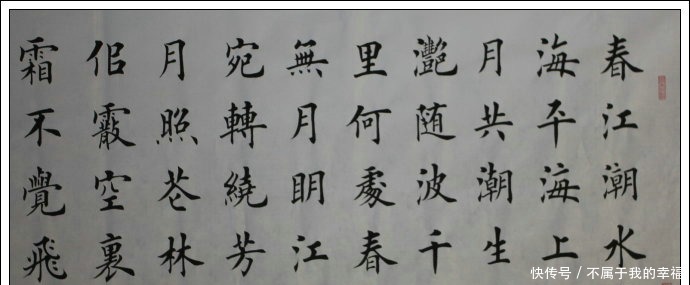 春江潮水
海平海上
月共潮生
灩随波千
里何處春
無月明江
宛轉繞芳
月照花林
佀霰空裏
霜不覺飛
快传号 / 不属于我的幸福